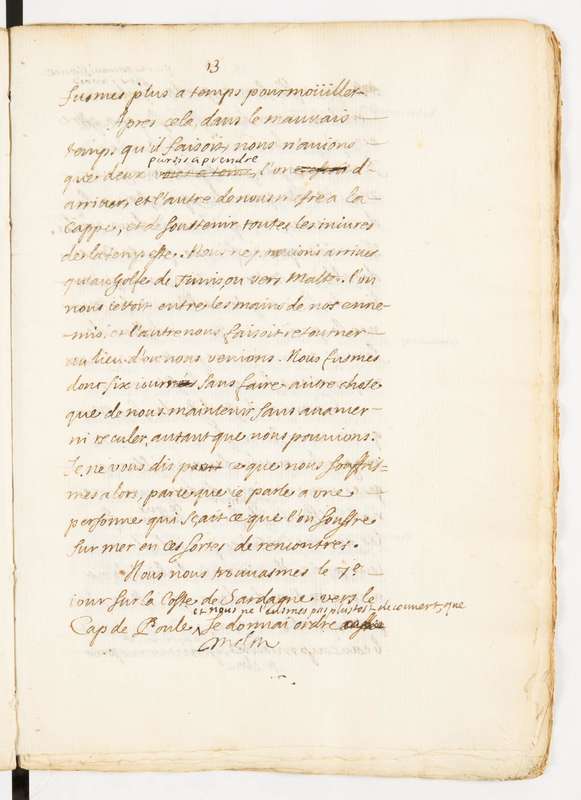 13
fusmes plus a temps pour moüiller.
Apres cela, dans le mauvais
temps qu'il faisoit, nous n'auions
partis a prendre
que deux l'un d'-
arriuer, et l'autre de nous mettre a la
Cappe, et de soustenir toutes les iniures
de la tempeste. Nous ne pouuions arriuer
qu'au Golfe de Tunis, ou vers Malte. l'un
nous iettoit entre les mains de nos enne-
mis, et l'autre nous faisoit retourner
au lieu d'ou nous venions. Nous fusmes
donc six iours sans faire autre chose
que de nous maintenir sans auancer
ni reculer, autant que nous pouuions.
Je ne vous dis point ce que nous souffris-
mes alors, parce que ie parle a vne
personne qui sçait ce que l'on souffre
sur mer en ces sortes de rencontres.
Nous nous trouuasmes le 7e
iour sur la Coste de Sardagne vers le
et nous ne l'eusmes pas plustost decouuert, que
Cap de Poule. Je donnai ordre